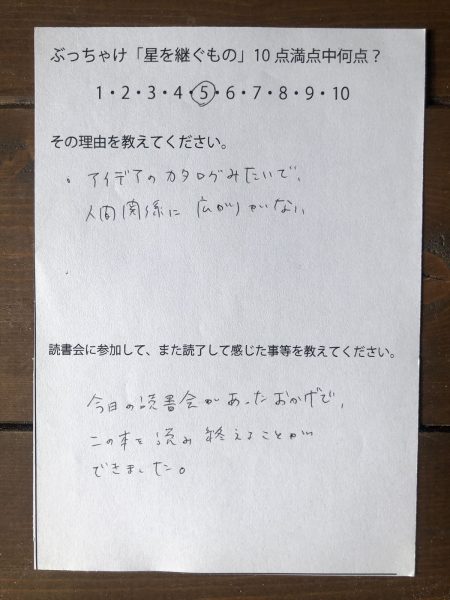 ぶっちゃけ「星を継ぐもの」10 点満点中何点？
1・2・3・4・5・6・7・8・9・10
その理由を教えてください。
・アイデアのカタログみたいで、
人間関係に広がりがない
読書会に参加して、また読了して感じた事等を教えてください。
今日の読書会があったおかげで、
この本を読み終えることが
できました。